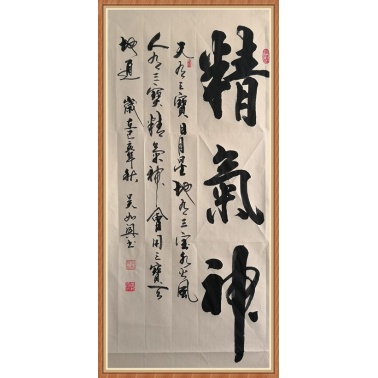 精氣神
天有三寶日月星地有三宝水火風
人有三寶精氣神會用三寶天
地通 歲在己亥年秋 吴如興书